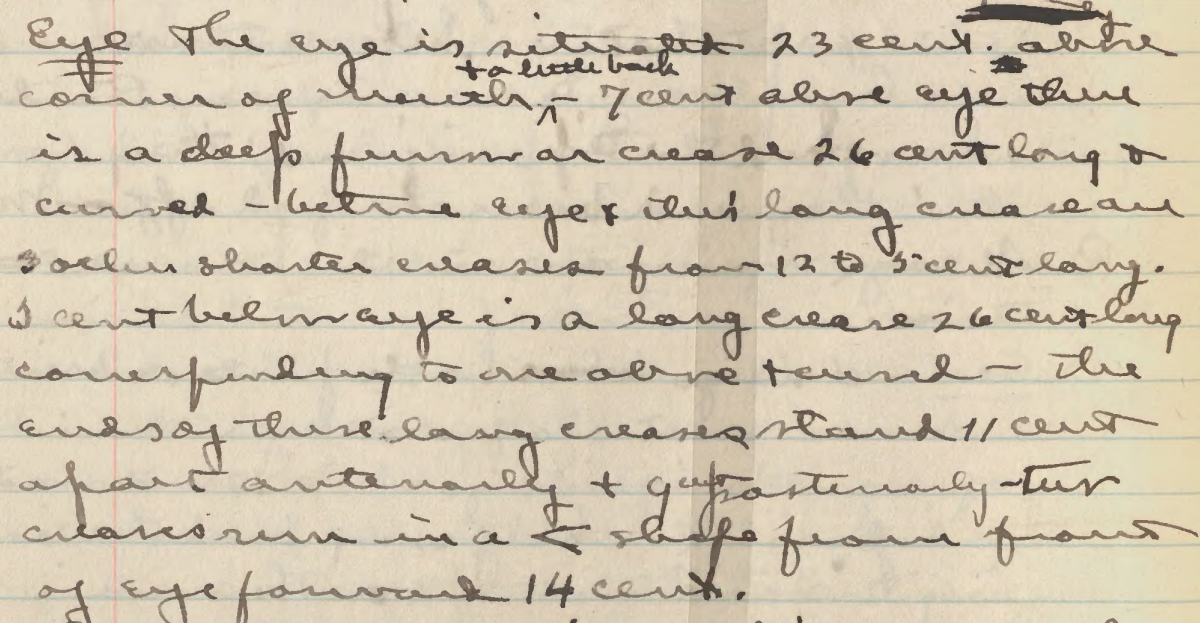 Eye The eye is situated 23 cent. above
+ a little back
corner of mouth - 7 cent above eye there
is a deep furrow or crease 26 cent long &
curved - betwe eye & this long crease are
3 other shorter creases from 12 to 5 cent long.
5 cent below eye is a long crease 26 cent long
corresponding to one above + curved - the
ends of these long creases stand 11 cent
apart anteriorly + 9 posteriorly - two
creases run in a < shape from front
of eye forward 14 cent.